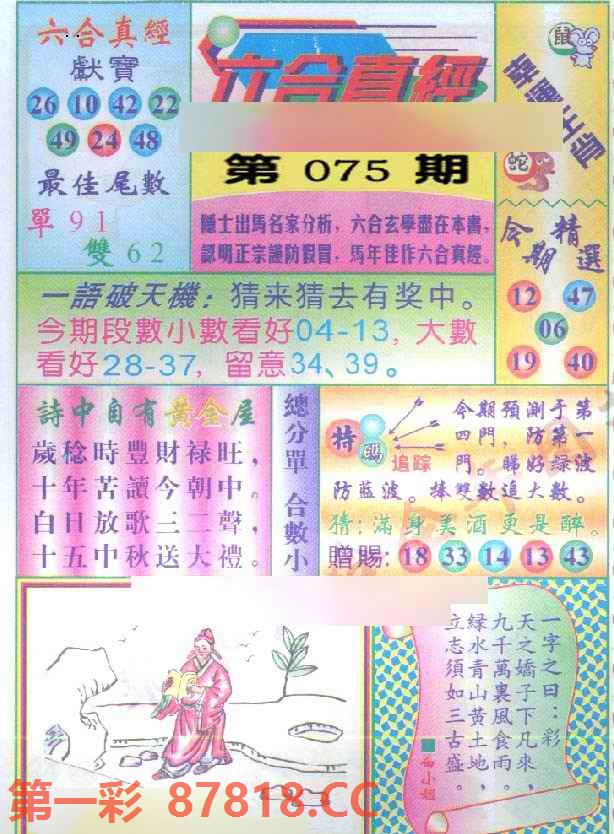 六合真經
獻寶
26 10 42 22
49 24 48
最佳尾數
單91
雙62
六合真經
第075期
隱士出馬名家分析，六合玄學盡在本書，
認明正宗謹防假冒，馬年佳作六合真經。
鼠
蛇
今期精選
12 47
06
19 40
一語破天機：猜来猜去有奖中。
今期段數小數看好04-13，大數
看好28-37，留意34、39。
詩中自有黄金屋
歲稔時豐財禄旺，
十年苦讀今朝中。
白日放歌三二聲，
十五中秋送大禮。
總分單 合數小
特碼
追踪
今期預測于第
四門，防第一
門。睇好绿波
防藍波。捧雙數追大數。
猜：滿身美酒更是醉。
贈賜：18 33 14 13 43
一字之曰：彩
天之嬌子下凡來，
九千萬裏風食雨，
緑水青山黄土地，
立志須如三古盛。
白小姐
第一彩 87818.CC